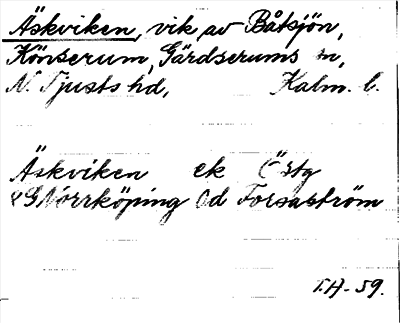 Äskviken, vik av Båtsjön,
Könserum, Gärdserums sn,
N. Tjusts hd, Kalm. l.
Äskviken ek Östg
GNorrköping Od Forsaström
T.H-59.